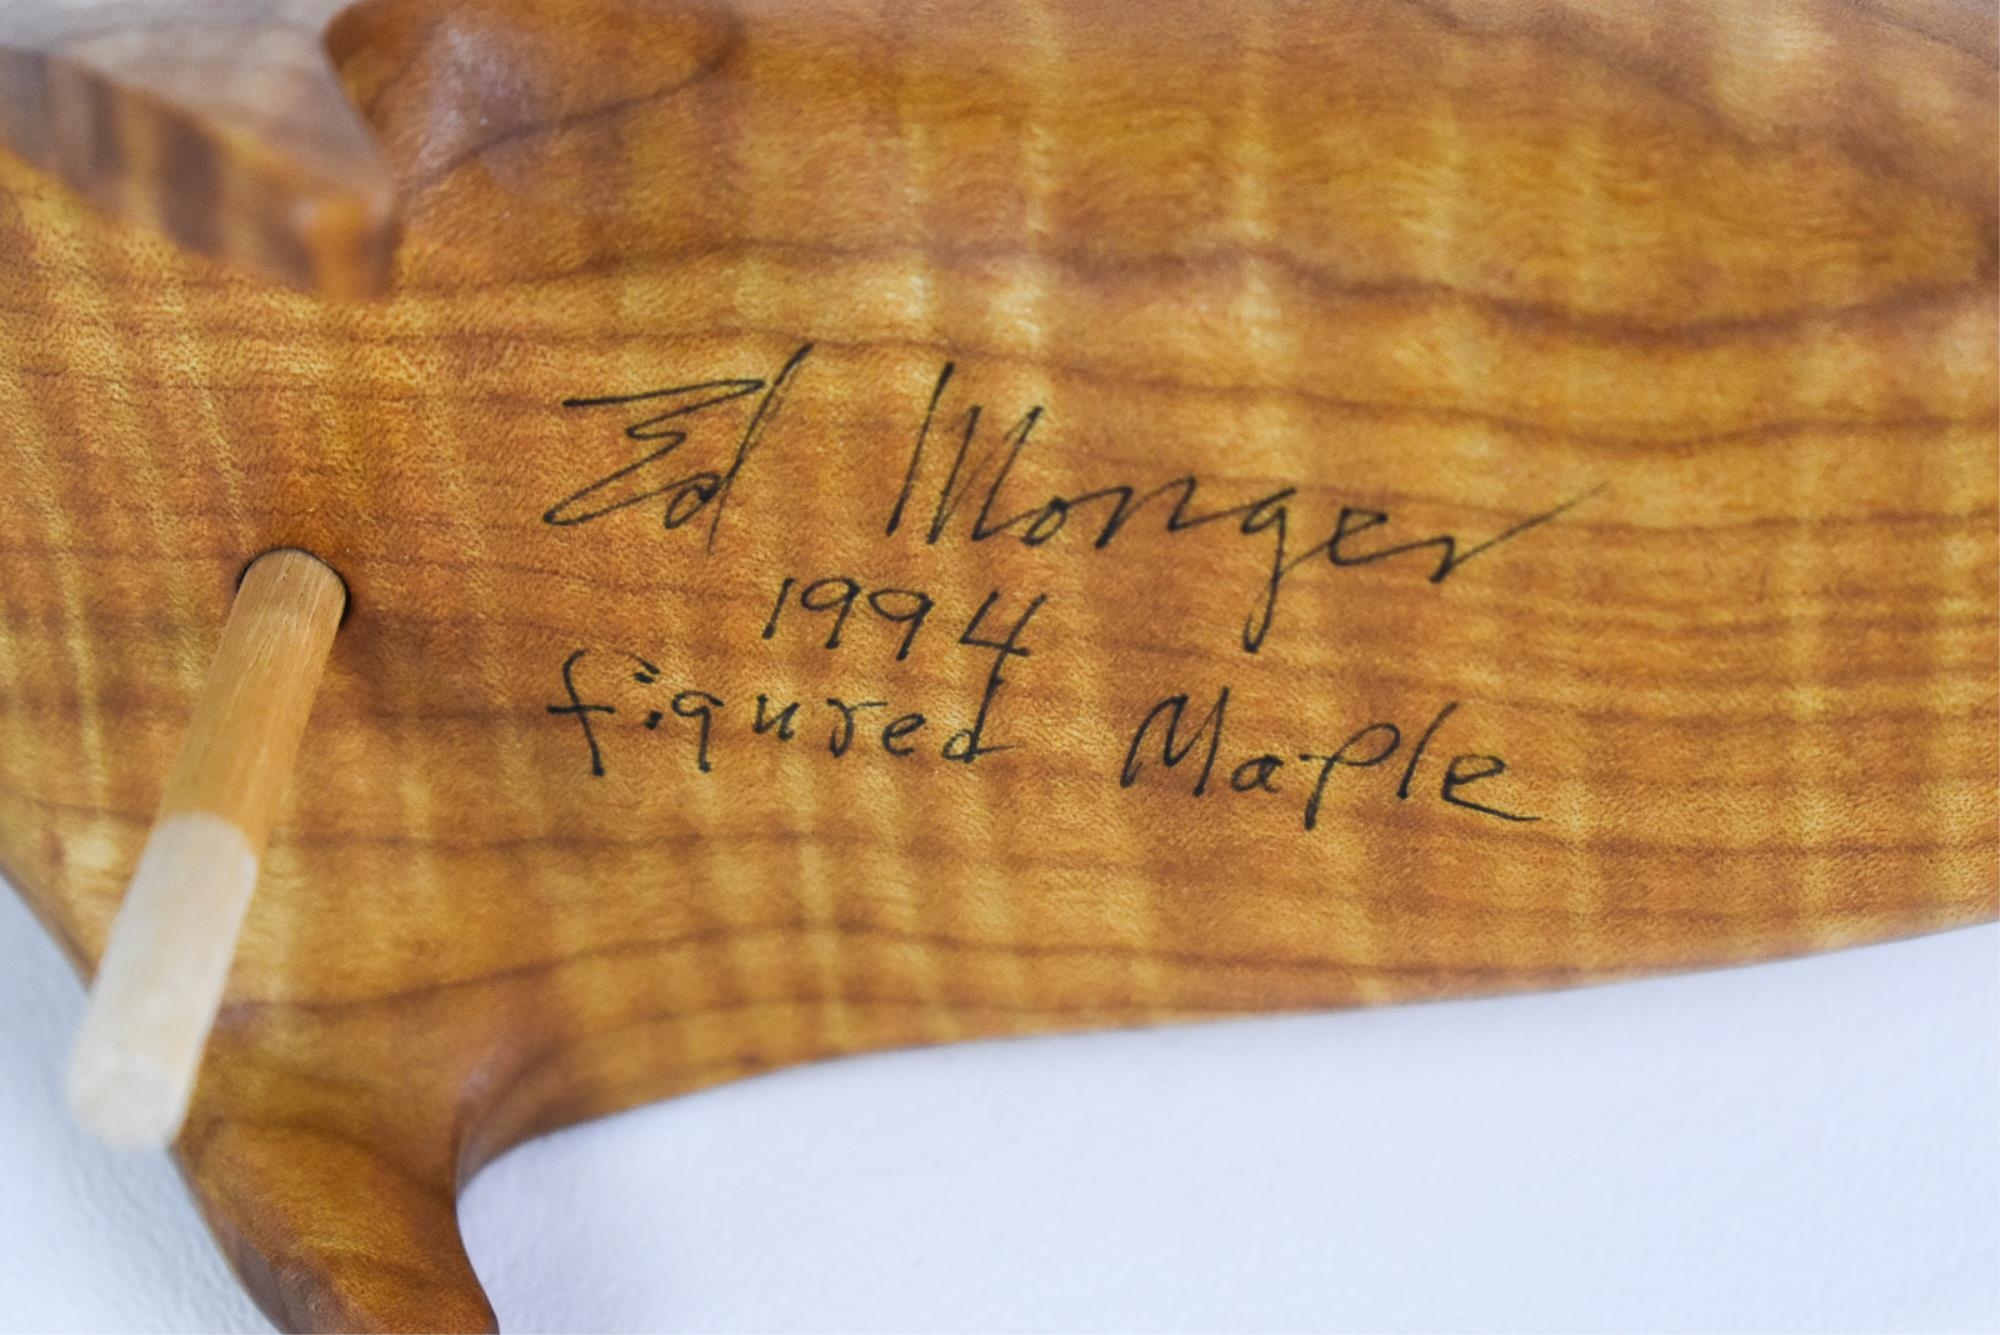 Ed Monger
1994
figured Maple